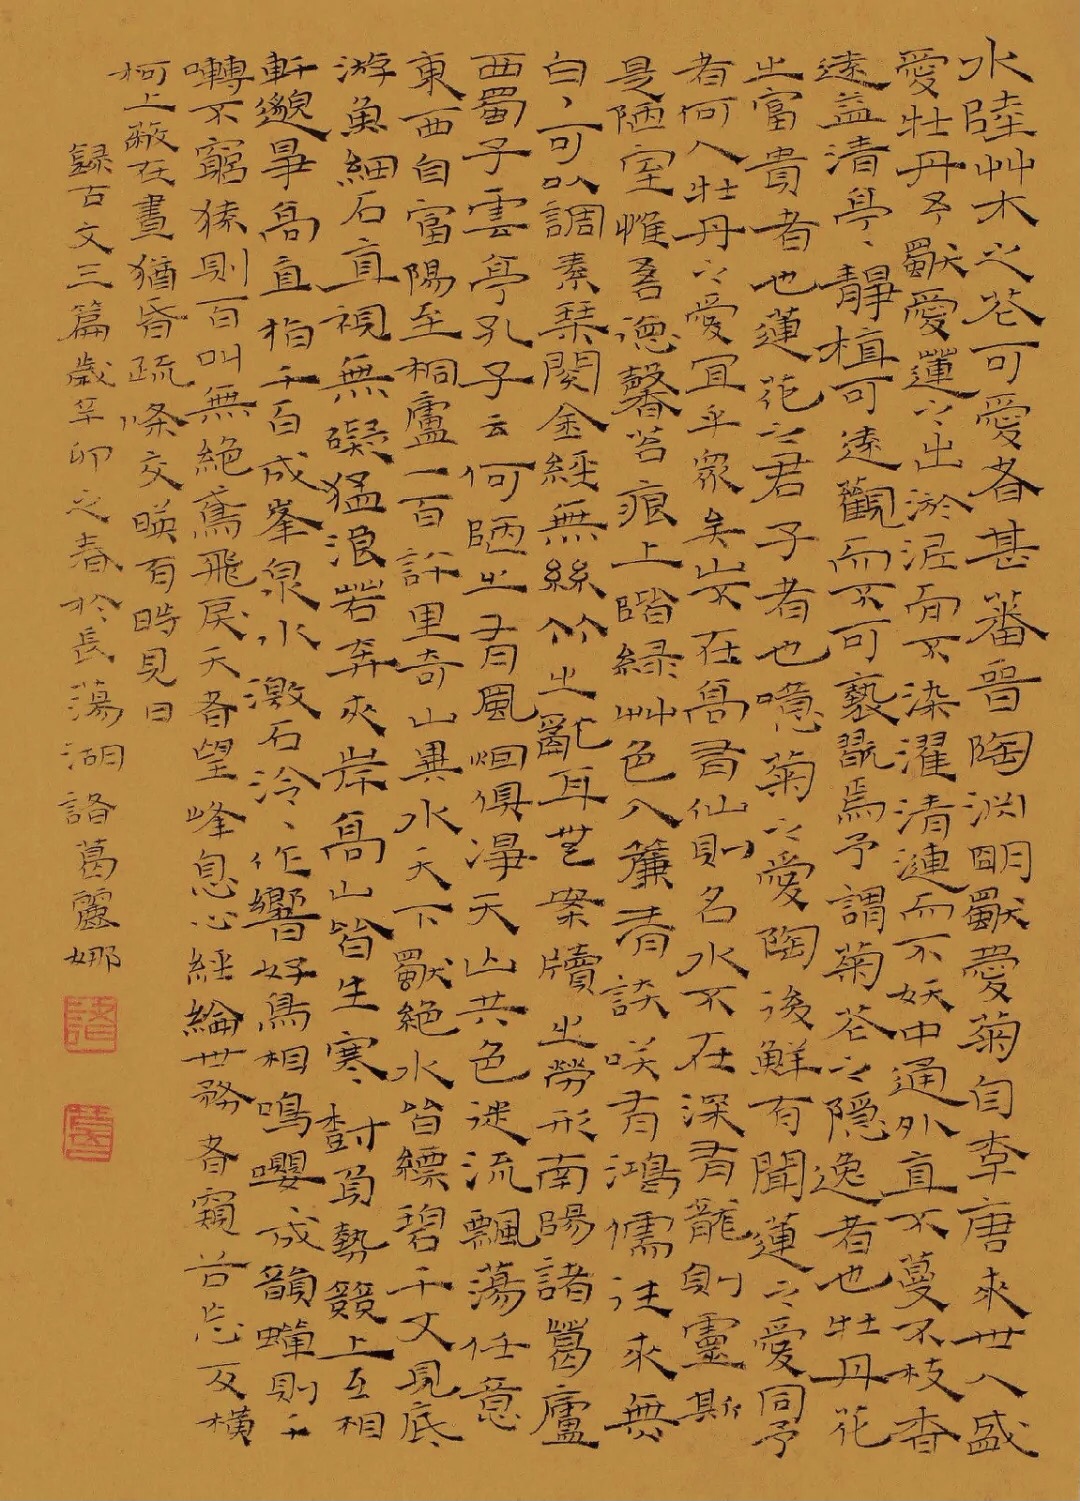 水陸艸木之花可愛者甚蕃晉陶渊明獨愛菊自李唐來世人盛
愛牡丹予獨愛蓮之出淤泥而不染濯清漣而不妖中通外直不蔓不枝香
遠益清亭〻静植可遠觀而不可褻翫焉予謂菊花之隱逸者也牡丹花
之富貴者也蓮花之君子者也噫菊之愛陶後鮮有聞蓮之愛同予
者何人牡丹之愛宜乎眾矣山不在高有仙則名水不在深有龍則靈斯
是陋室惟吾德馨苔痕上階緑艸色入簾青談咲有鴻儒往來無
白丶可以調素琴閱金經無絲竹之亂耳無案牘之勞形南陽諸葛廬
西蜀子雲亭孔子云何陋之有風烟俱淨天山共色從流飄蕩任意
東西自富陽至桐廬一百許里奇山異水天下獨絶水皆縹碧千丈見底
游魚細石直視無礙猛浪若奔夾岸高山皆生寒樹負勢競上互相
軒邈爭高直指千百成峯泉水激石泠〻作響好鳥相鳴嚶〻成韻蟬則千
囀不窮猿則百叫無絶鳶飛戾天者望峰息心經綸世務者窺谷忘反橫
柯上蔽在晝猶昏疏條交暎有時見日
録古文三篇歲辛卯之春於長蕩湖諸葛麗娜